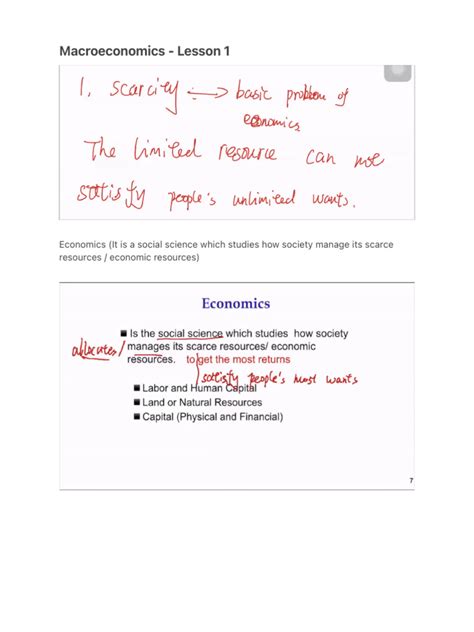 Macroeconomics - Lesson 1
1. scarcity → basic problem of
economics
The limited resource can not
satisfy people's unlimited wants.
Economics (It is a social science which studies how society manage its scarce
resources / economic resources)
Economics
■ Is the social science which studies how society
allocates/ manages its scarce resources/ economic
resources. to get the most returns
satisfy people's most wants
■ Labor and Human Capital
■ Land or Natural Resources
■ Capital (Physical and Financial)
7